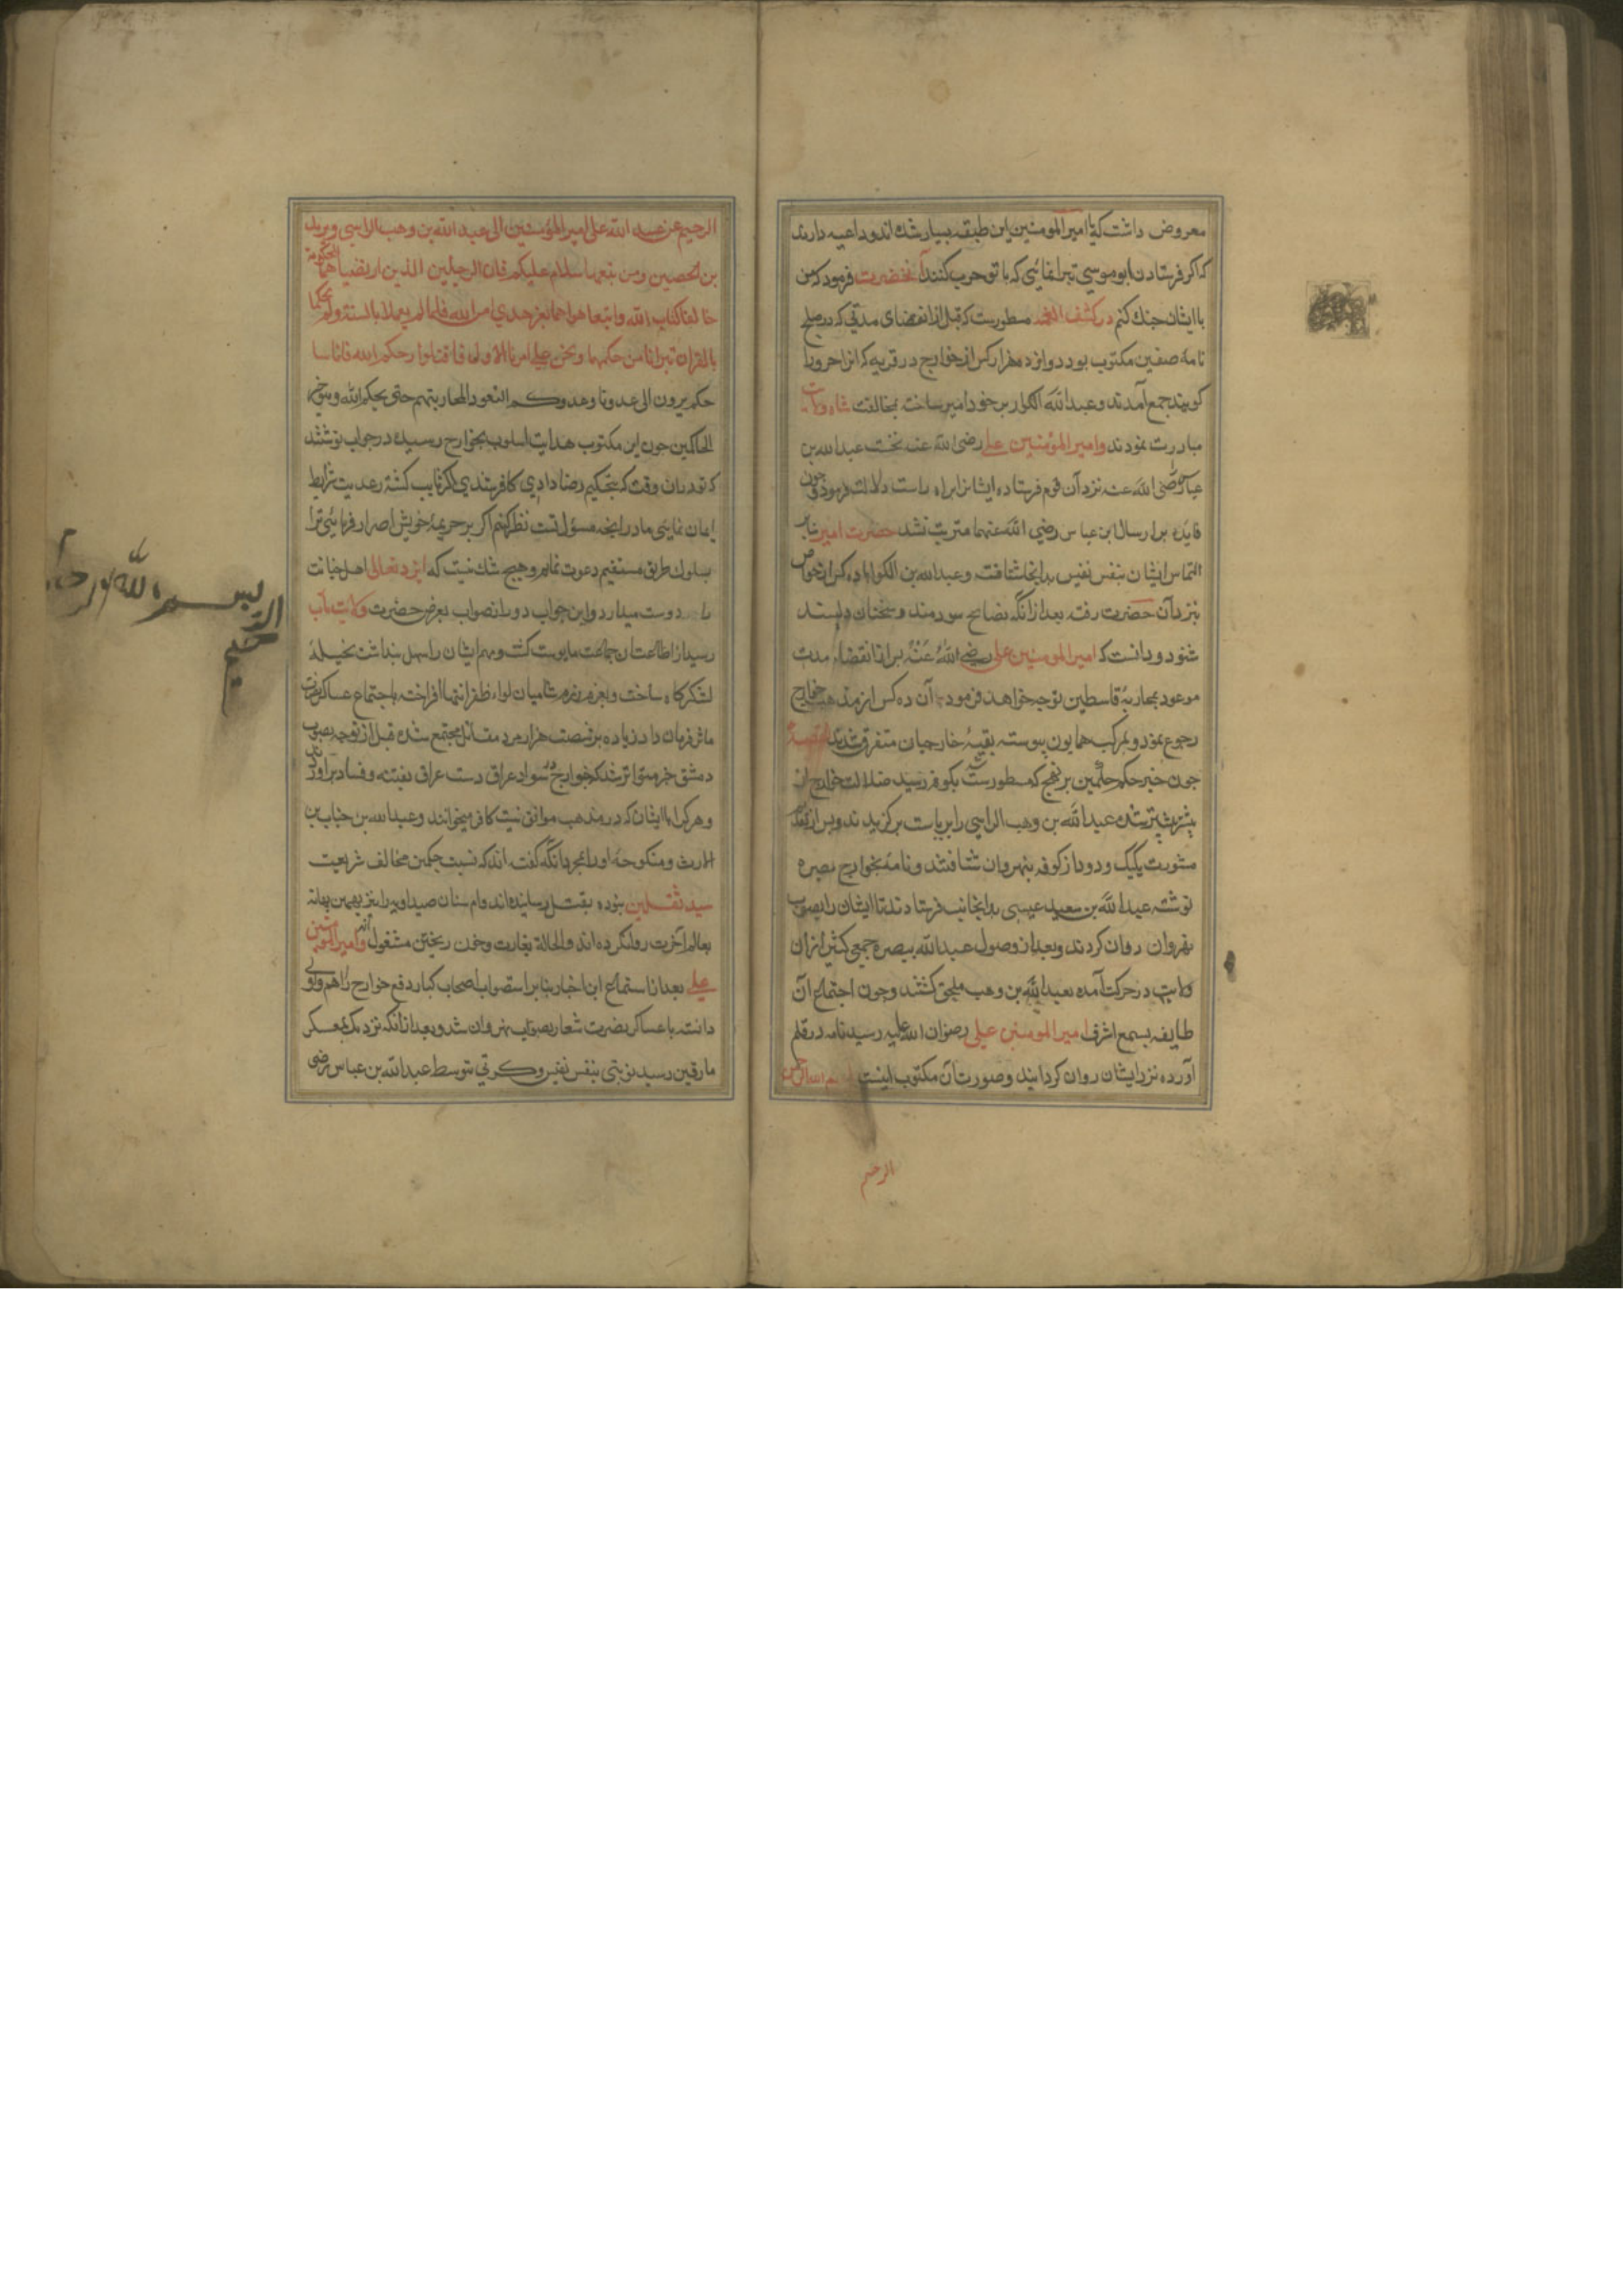 معروض داشت که یا امیرالمومنین این طبقه بسیار شده اند و داعیه دارند
که اگر فرستادن ابو موسی تبرا نمائی که با تو حرب کنند آنحضرت فرمود که من
با ایشان جنك کنم در کشف الغمه مسطورست که قبل از انقضای مدتی که در صلح
نامهٔ صفین مکتوب بود دوازده هزار کس از خوارج در قریه که انرا حرورا
کویند جمع آمدند و عبدالله الکوا را بر خود امیر ساخته بمخالفت شاه ولایت
مبادرت نمودند وامیرالمؤمنین علی رضی الله عنه نخست عبدالله بن
عباس رضی الله عنه نزد آن قوم فرستاده ایشانرا براه راست دلالت فرمود و چون
فایده برارسال ابن عباس رضی الله عنهما مترتب نشد حضرت امیر بنابر
التماس ایشان بنفس نفیس بدانجا شتافت و عبدالله بن الکوا با ده کس از خواص
بنزد آن حضرت رفته بعد از انکه نصایح سودمند و سخنان دلپسند
شنود و دانست که امیرالمومنین علی رضی الله عنه پس از انقضاء مدت
موعود بمحاربهٔ قاسطین توجه خواهد فرمود با آن ده کس از مذهب خوارج
رجوع نمود و بمرکب همایون پیوسته بقیهٔ خارجیان متفرق شدند
جون خبر حکم حکمین بر نهج که مسطور کشت بکوفه رسید ضلالت خوارج از
بیشتر بیشتر شده عبدالله بن وهب الراسبی را بریاست برکزیدند و پس از تقدیم
مشورت یکیك و دو دو از کوفه بنهروان شتافتند و نامه بخوارج بصره
نوشته عبدالله بن سعید عبسی بدانجانب فرستادند تا ایشان را بصوب
نهروان روان کردند و بعد از وصول عبدالله ببصره جمعی کثیر از ان
ولایت در حرکت آمده بعبدالله بن وهب ملحق کشتند و چون اجتماع آن
طایفه بسمع اشرف امیرالمومنین علی رضوان الله علیه رسید نامه در قلم
آورده نزد ایشان روان کردانید و صورت آن مکتوب اینست بسم الله الرحمن
الرحیم
الرحیم من عبد الله علی امیرالمؤمنین الی عبد الله بن وهب الراسبی و یزید
بن الحصین و من تبعهما سلام علیکم فان الرجلین الذین ارتضیا هما للحکومة
خالفا کتاب الله واتبعا هواهما بغیر هدی من الله فلما لم یعملا بالسنة ولم یحکما
بالقران تبرانا من حکمهما و نحن علی امرنا الاول فاقبلوا رحمکم الله فانا سا
حکم یرون الی عدونا وعدوکم لنعود المحاربتهم حتی یحکم الله وهو خیر
الحاکمین جون این مکتوب هدایت اسلوب بخوارج رسید در جواب نوشتند
که تو دران وقت که بتحکیم رضا دادی کافر شدی اکر تایب کشته رعایت شرایط
ایمان نمایی ما در انچه مسؤل تست نظر کنیم اکر بر جریمهٔ خویش اصرار فرمائی ترا
بسلوك طریق مستقیم دعوت نمایم و هیچ شك نیست که ایزد تعالی اهل خیانت
را دوست میدارد و این جواب دور از صواب بعرض حضرت ولایت مآب
رسید از اطاعت ان جماعت مایوس کشت و مهم ایشان را سهل پنداشته نخیله
لشکرکاه ساخت و بعزم رزم شامیان لواء ظفر انتما افراخته باجتماع عساکر نصرت
ماثر فرمان داد زیاده بر شصت هزار مرد مقاتل مجتمع شده قبل از توجه بصوب
دمشق خبر متواتر شد که خوارج در سواد عراق دست عراق بفتنه و فساد بر آورند
و هر کرا با ایشان که در مذهب موافق نیست کافر میخوانند و عبدالله بن خباب بن
الارث و منکوحهٔ او را بمجرد انکه کفته اند که نسبت حکمین مخالف شریعت
سید ثقلین بوده بقتل رسانیده اند وام سنان صیداویه را نیز بهمین بهانه
بعالم آخرت روان کرده اند و الحالة بغارت و خون ریختن مشغول اند وامیرالمومنین
علی بعد از استماع این اخبار بنا بر استصواب اصحاب کبار دفع خوارج را اهم و اولی
دانسته با عساکر نصرت شعار بصوب نهروان شد و بعد از انکه نزدیك بمعسکر
مارقین رسید نوبتی بنفس نفیس و کرتی بتوسط عبدالله بن عباس رضی
بسم الله الرحمن
الرحیم